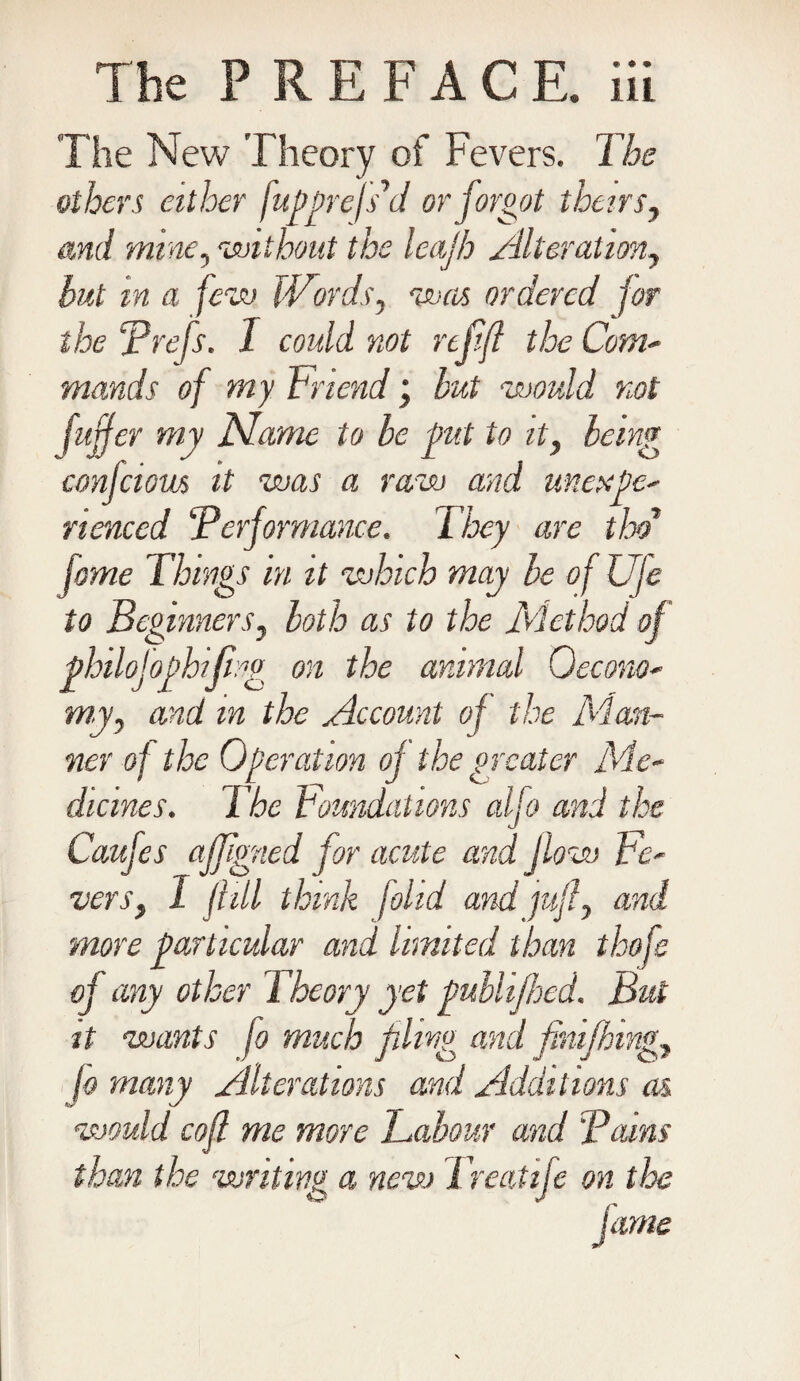 The PREFACE. iii
The New Theory of Fevers. The
others either ſuppreſs'd or forgot theirs,
and mine, without the leaſh Alteration,
but in a few Words, was ordered for
the Preſs. I could not reſiſt the Com-
mands of my Friend; but would not
ſuffer my Name to be put to it, being
conſcious it was a raw and unexpe-
rienced Performance. They are tho'
ſome Things in it which may be of Uſe
to Beginners, both as to the Method of
philoſophiſing on the animal Oecono-
my, and in the Account of the Man-
ner of the Operation of the greater Me-
dicines. The Foundations alſo and the
Cauſes aſſigned for acute and ſlow Fe-
vers, I ſtill think ſolid and juſt, and
more particular and limited than thoſe
of any other Theory yet publiſhed. But
it wants ſo much filing and finiſhing,
ſo many Alterations and Additions as
would coſt me more Labour and Pains
than the writing a new Treatiſe on the
ſame